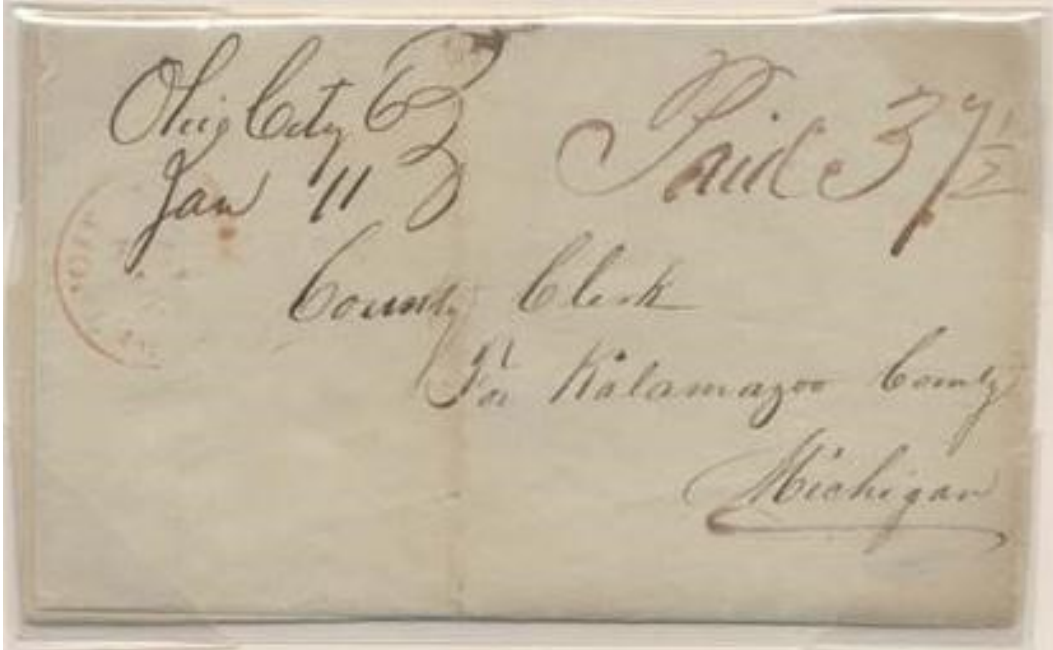 Ohio City
Jan 11
Paid 37 1/2
County Clerk
For Kalamazoo County
Michigan